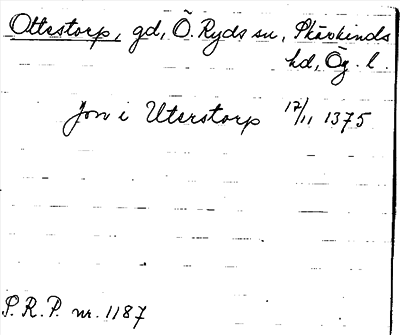 Ottestorp, gd, Ö. Ryds sn, Skärkinds
hd, Ög. l.
Jon i Uterstorp 17/11 1375
P.R.P. nr. 1187